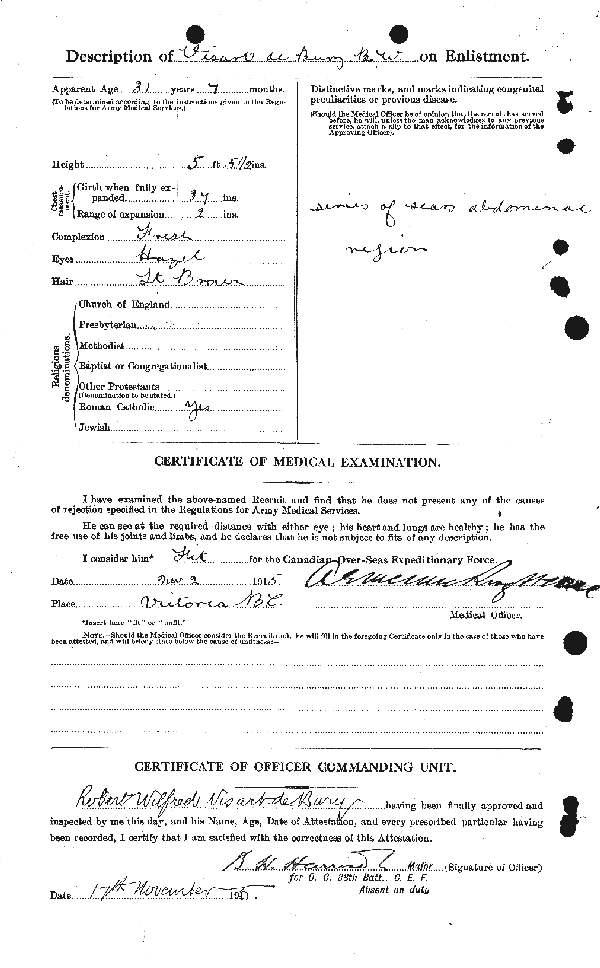 Description of Visart de Bury R W on Enlistment.
Apparent Age 31 years 7 months.
(To be determined according to the instructions given in the Regulations for Army Medical Services.)
Height 5 ft 5 1/2 ins.
Chest measurement. Girth when fully expanded 37 ins.
Range of expansion 2 ins.
Complexion Fresh
Eyes Hazel
Hair Lt Brown
Religious denominations.
Church of England
Presbyterian
Methodist
Baptist or Congregationalist
Other Protestants
(Denomination to be stated.)
Roman Catholic Yes
Jewish
Distinctive marks, and marks indicating congenital
peculiarities or previous disease.
(Should the Medical Officer be of opinion that the recruit has served
before, he will, unless the man acknowledges to any previous
service, attach a slip to that effect, for the information of the
Approving Officer).
series of scars abdominal
region
CERTIFICATE OF MEDICAL EXAMINATION.
I have examined the above-named Recruit and find that he does not present any of the causes
of rejection specified in the Regulations for Army Medical Services.
He can see at the required distance with either eye; his heart and lungs are healthy; he has the
free use of his joints and limbs, and he declares that he is not subject to fits of any description.
I consider him* Fit for the Canadian Over-Seas Expeditionary Force.
Date Nov 2 1915
Place Victoria B.C.
Medical Officer.
*Insert here "fit" or "unfit."
NOTE.—Should the Medical Officer consider the Recruit unfit, he will fill in the foregoing Certificate only in the case of those who have
been attested, and will briefly state below the cause of unfitness:—
CERTIFICATE OF OFFICER COMMANDING UNIT.
Robert Wilfred Visart de Bury having been finally approved and
inspected by me this day, and his Name, Age, Date of Attestation, and every prescribed particular having
been recorded, I certify that I am satisfied with the correctness of this Attestation.
Major (Signature of Officer)
for O. C. 88th Batt. C. E. F.
Absent on duty
Date 17th November 1915.